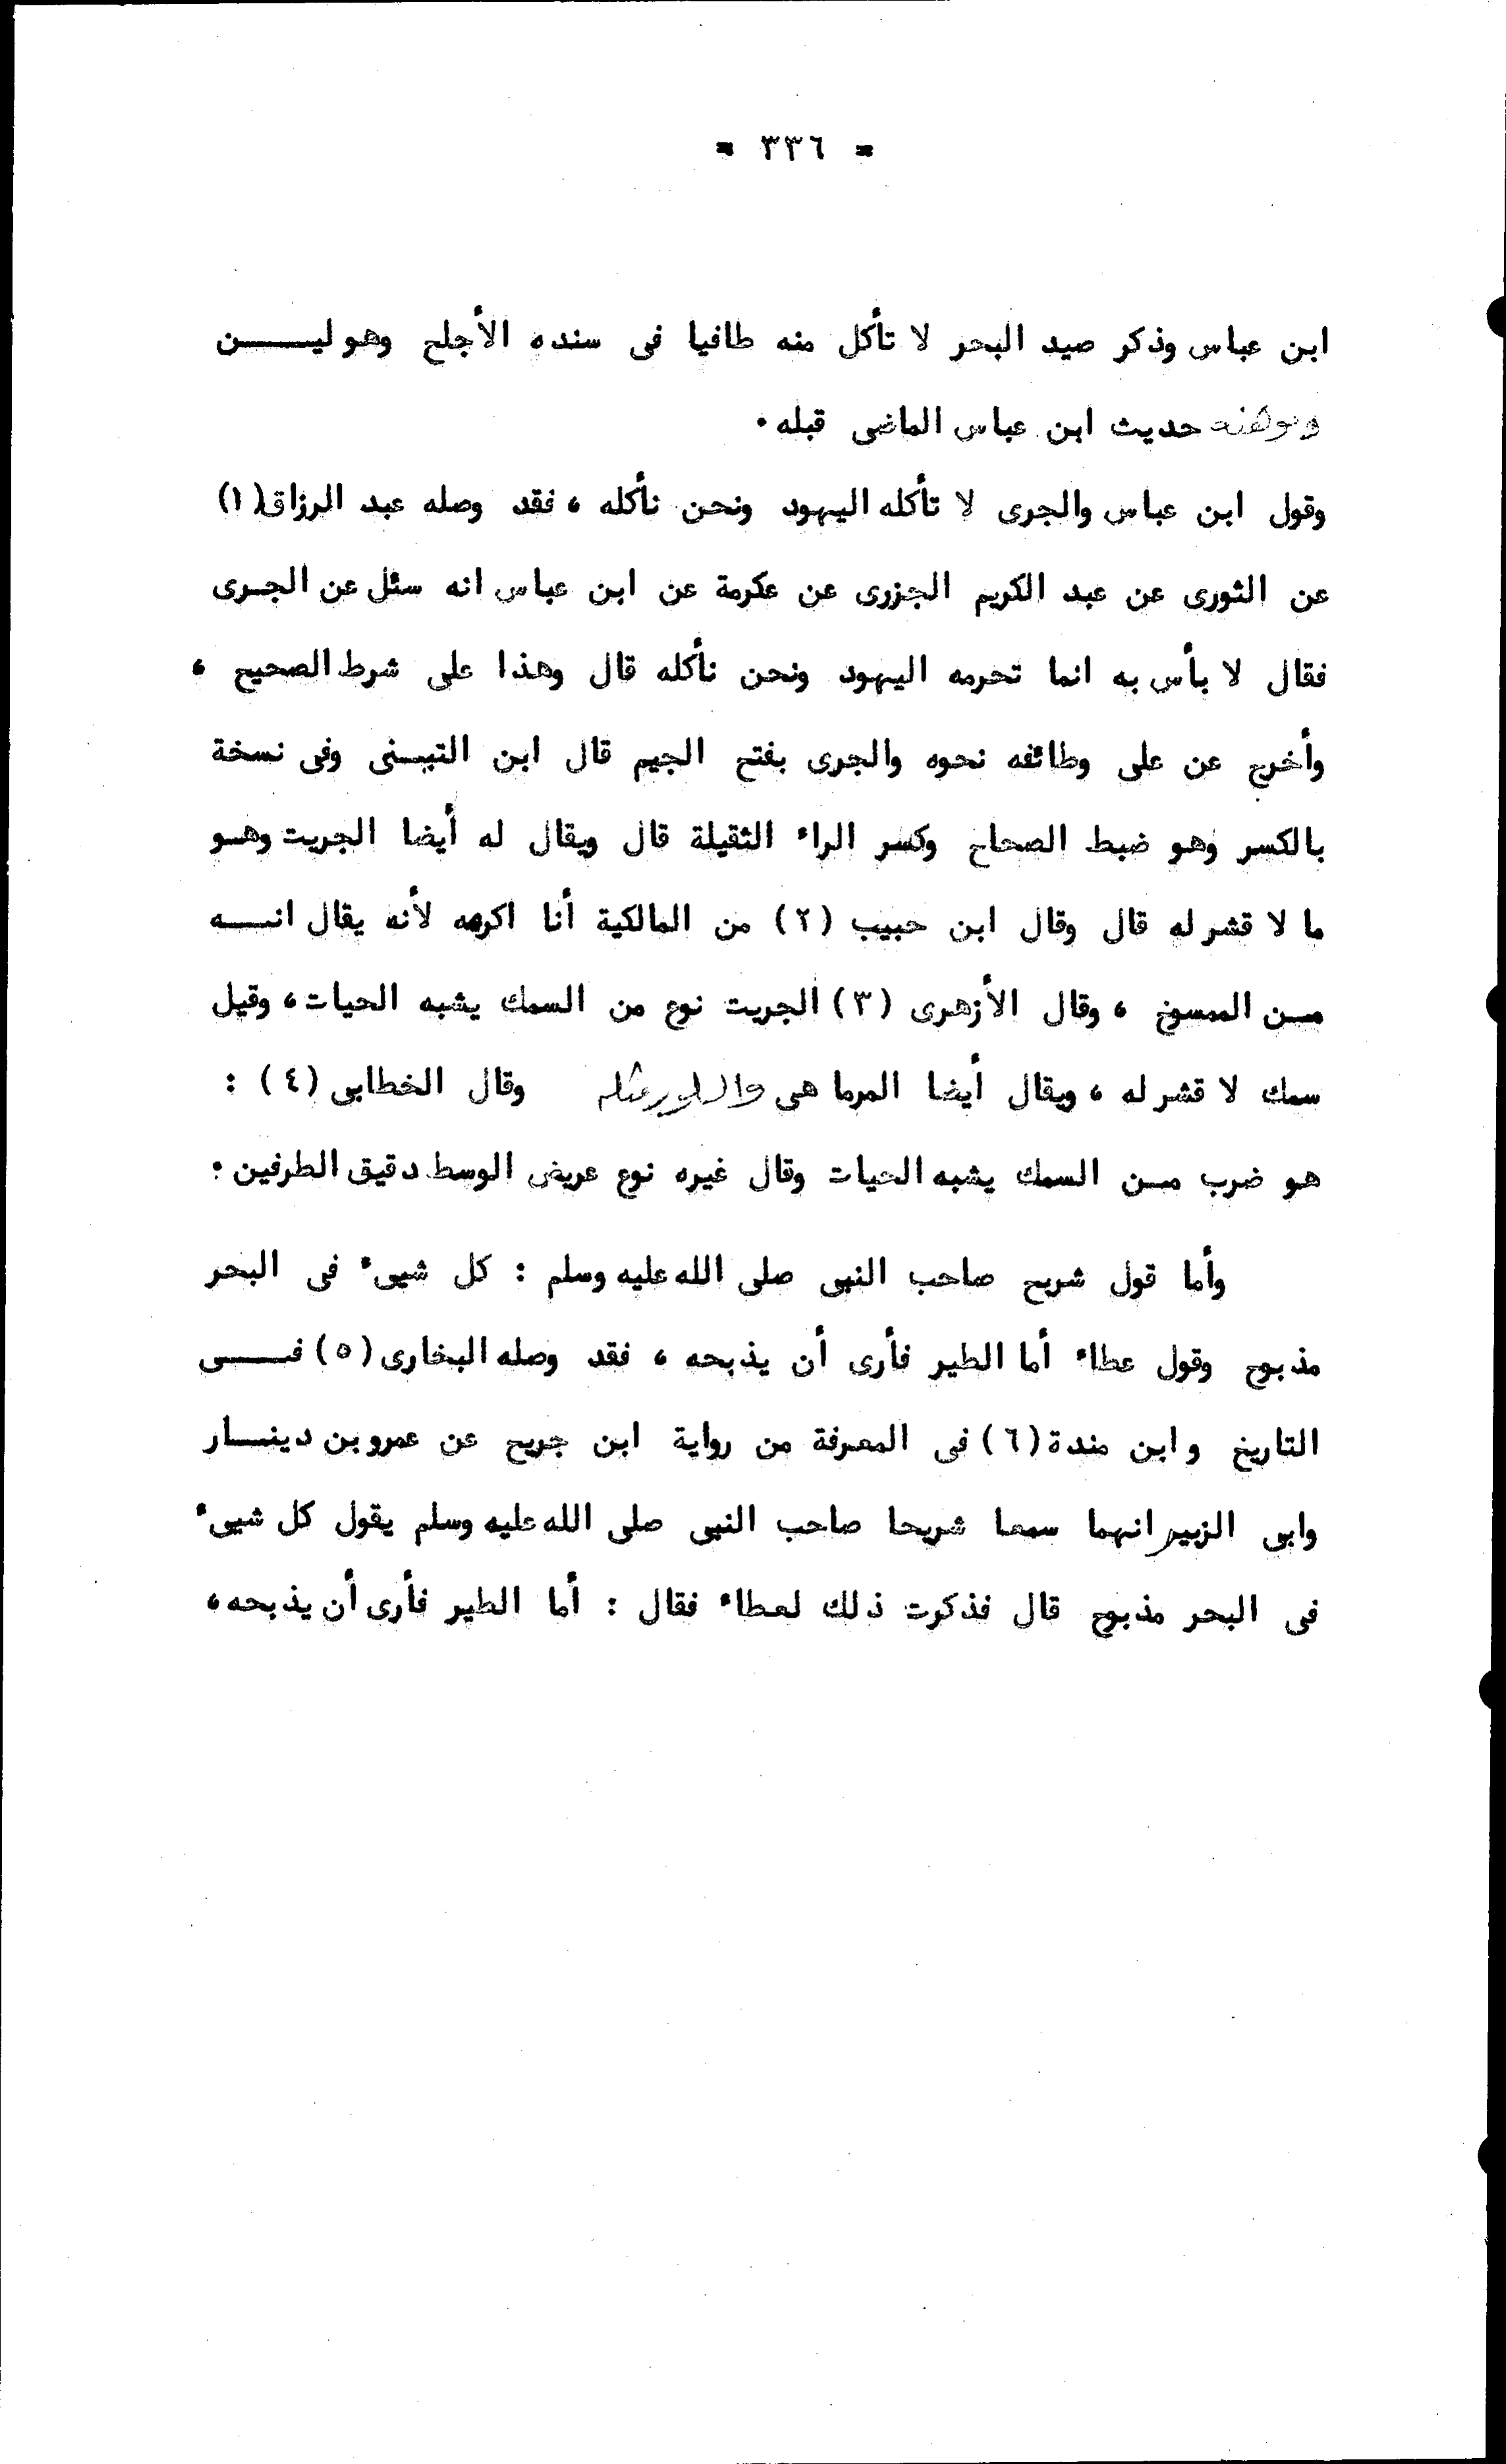 = ٣٣٦ =
ابن عباس وذكر صيد البحر لا تأكل منه طافيا فى سنده الأجلح وهو ليــــن
ويوهنه حديث ابن عباس الماضى قبله .
وقول ابن عباس والجرى لا تأكله اليهود ونحن نأكله ، فقد وصله عبد الرزاق (١)
عن الثورى عن عبد الكريم الجزرى عن عكرمة عن ابن عباس انه سئل عن الجـرى
فقال لا بأس به انما تحرمه اليهود ونحن نأكله قال وهذا على شرط الصحيح ،
وأخرج عن على وطائفه نحوه والجرى بفتح الجيم قال ابن التيـنى وفى نسخة
بالكسر وهو ضبط الصحاح وكسر الراء الثقيلة قال ويقال له أيضا الجريت وهـو
ما لا قشر له قال وقال ابن حبيب (٢) من المالكية أنا اكرهه لأنه يقال انــه
مـن الممسوخ ، وقال الأزهرى (٣) الجريت نوع من السمك يشبه الحيات ، وقيل
سمك لا قشر له ، ويقال أيضا المرما هى مثله وقال الخطابى (٤) :
هو ضرب مـن السمك يشبه الحيات وقال غيره نوع عريض الوسط دقيق الطرفين .
وأما قول شريح صاحب النبى صلى الله عليه وسلم : كل شيىء فى البحر
مذبوح وقول عطاء أما الطير فأرى أن يذبحه ، فقد وصله البخارى (٥) فــى
التاريخ وابن مندة (٦) فى المعرفة من رواية ابن جريح عن عمرو بن دينــار
وابى الزبير انهما سمعا شريحا صاحب النبى صلى الله عليه وسلم يقول كل شيىء
فى البحر مذبوح قال فذكرت ذلك لعطاء فقال : أما الطير فأرى أن يذبحه ،